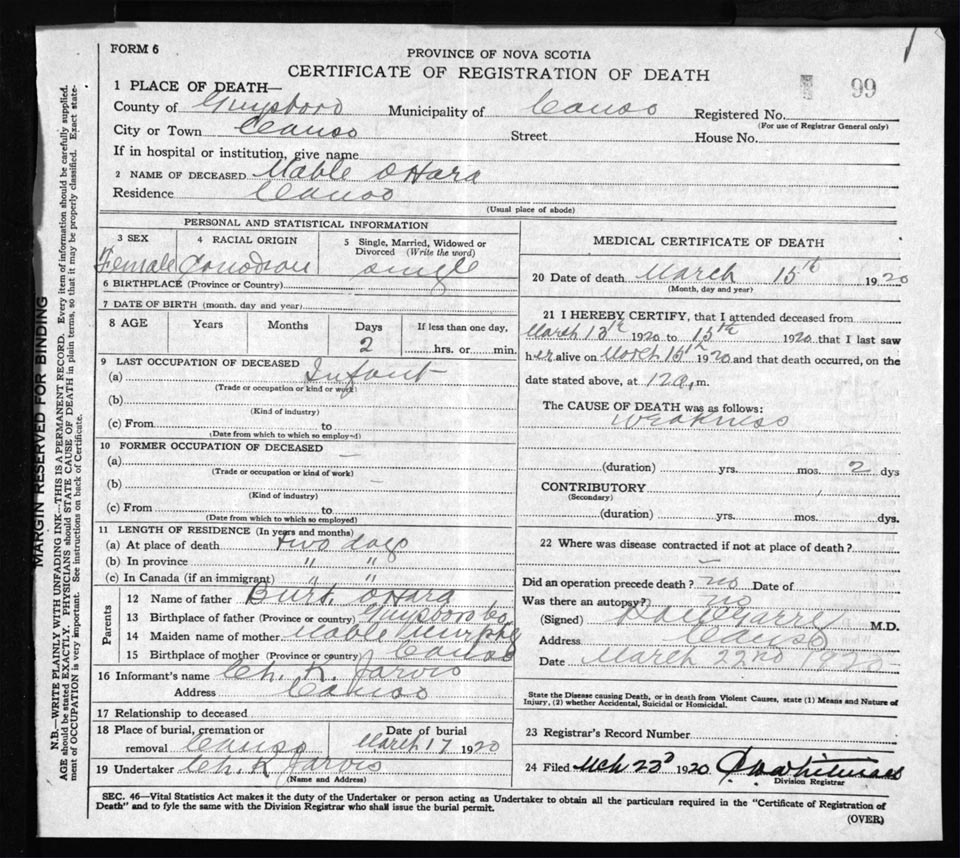 FORM 6
PROVINCE OF NOVA SCOTIA
CERTIFICATE OF REGISTRATION OF DEATH
99
1 PLACE OF DEATH—
County of Guysboro Municipality of Canso Registered No.
(For use of Registrar General only)
City or Town Canso Street House No.
If in hospital or institution, give name
2 NAME OF DECEASED Mable OHara
Residence Canso
(Usual place of abode)
PERSONAL AND STATISTICAL INFORMATION
3 SEX 4 RACIAL ORIGIN 5 Single, Married, Widowed or Divorced (Write the word)
Female Canadian Single
6 BIRTHPLACE (Province or Country)
7 DATE OF BIRTH (month, day and year)
8 AGE Years Months Days If less than one day,
2 hrs. or min.
9 LAST OCCUPATION OF DECEASED
(a) Infant
(Trade or occupation or kind or work)
(b)
(Kind of industry)
(c) From to
(Date from which to which so employed)
10 FORMER OCCUPATION OF DECEASED —
(a)
(Trade or occupation or kind of work)
(b) —
(Kind of industry)
(c) From to
(Date from which to which so employed)
11 LENGTH OF RESIDENCE (In years and months)
(a) At place of death two days
(b) In province " "
(c) In Canada (if an immigrant) " "
Parents
12 Name of father Burt. OHara
13 Birthplace of father (Province or country) Guysboro Co.
14 Maiden name of mother Mable Murphy
15 Birthplace of mother (Province or country) Canso
16 Informant's name Ch. K. Jarvis
Address Canso
17 Relationship to deceased
18 Place of burial, cremation or removal Canso
Date of burial
March 17 1920
19 Undertaker Ch. K Jarvis
(Name and Address)
MEDICAL CERTIFICATE OF DEATH
20 Date of death March 15th 1920
(Month, day and year)
21 I HEREBY CERTIFY, that I attended deceased from
March 13th 1920 to 15th 1920 that I last saw
her alive on March 15th 1920 and that death occurred, on the
date stated above, at 12 a. m.
The CAUSE OF DEATH was as follows:
Weakness
(duration) yrs. mos. 2 dys
CONTRIBUTORY
(Secondary)
(duration) yrs. mos. dys.
22 Where was disease contracted if not at place of death?
—
Did an operation precede death? no Date of
Was there an autopsy? no
(Signed) M.D.
Address Canso
Date March 22nd 1920
State the Disease causing Death, or in death from Violent Causes, state (1) Means and Nature of
Injury, (2) whether Accidental, Suicidal or Homicidal.
23 Registrar's Record Number
24 Filed Mch 23d 1920
Division Registrar
SEC. 46—Vital Statistics Act makes it the duty of the Undertaker or person acting as Undertaker to obtain all the particulars required in the "Certificate of Registration of
Death" and to fyle the same with the Division Registrar who shall issue the burial permit.
(OVER)
MARGIN RESERVED FOR BINDING
N.B.—WRITE PLAINLY WITH UNFADING INK—THIS IS A PERMANENT RECORD. Every item of information should be carefully supplied.
AGE should be stated EXACTLY. PHYSICIANS should STATE CAUSE OF DEATH in plain terms, so that it may be properly classified. Exact state-
ment of OCCUPATION is very important. See instructions on back of Certificate.